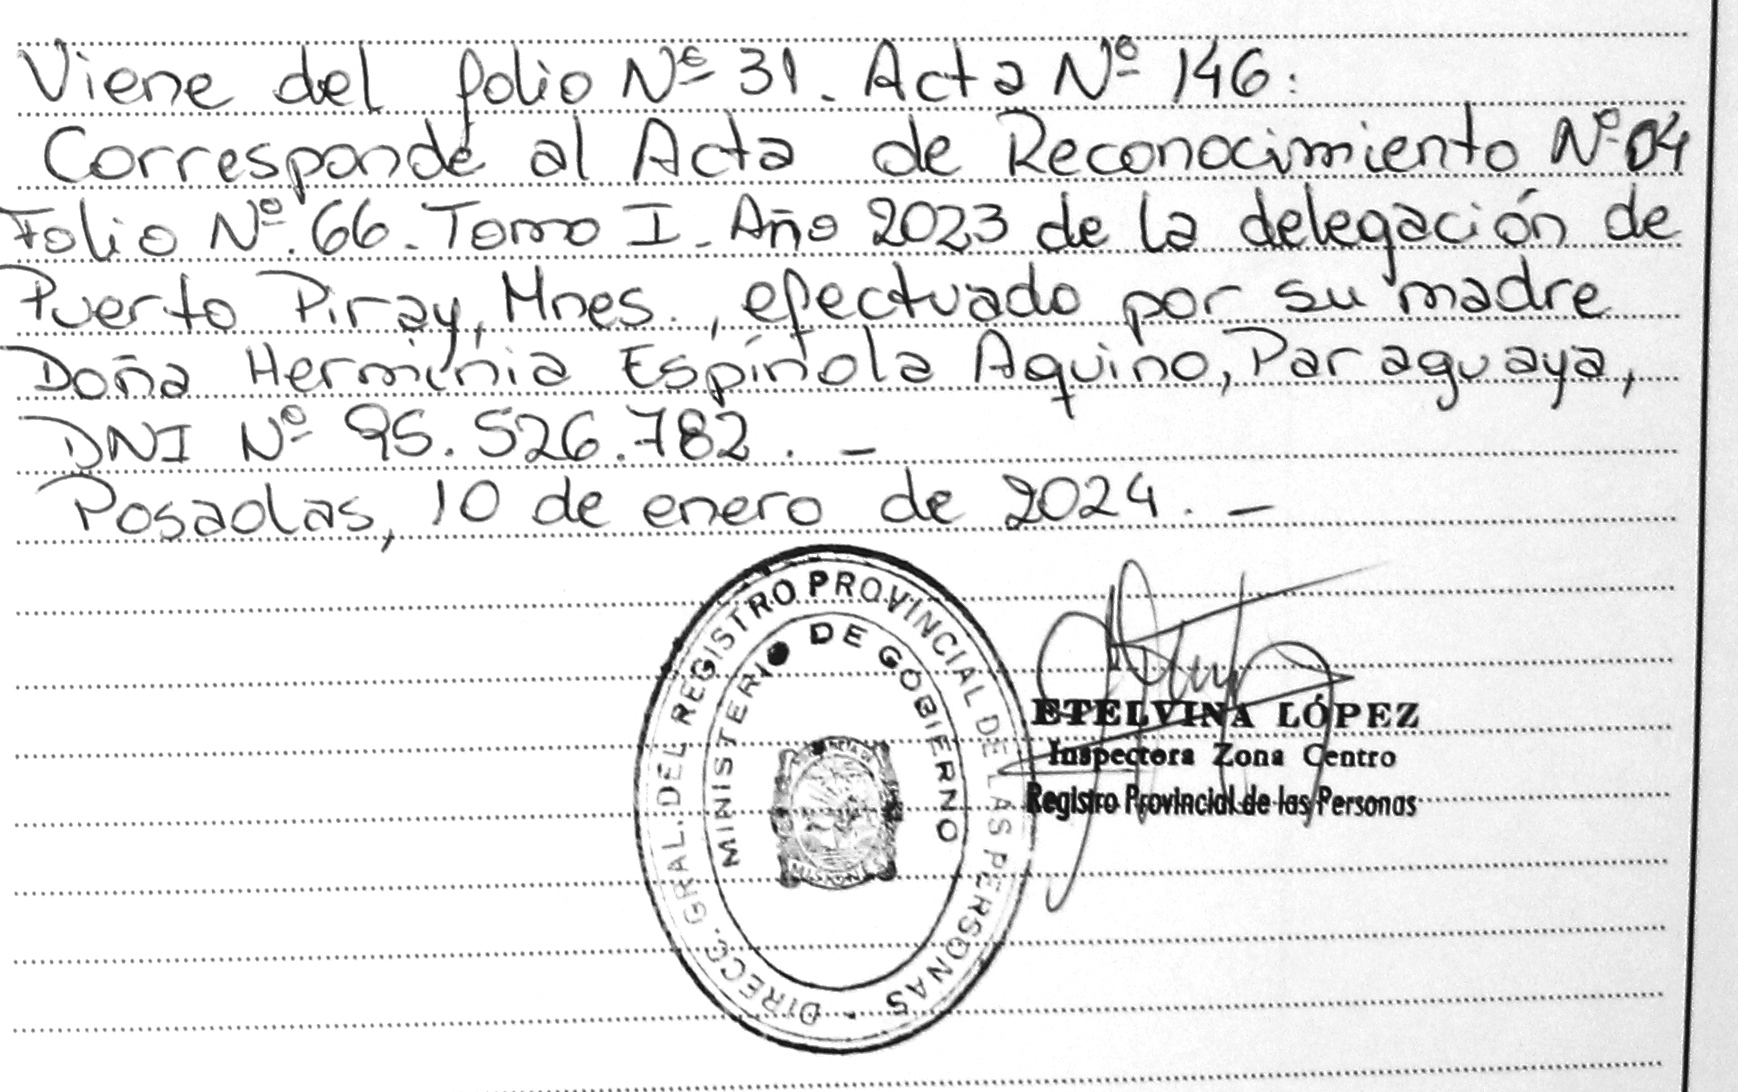 Viene del folio Nº 31. Acta Nº 146:
Corresponde al Acta de Reconocimiento Nº 04
Folio Nº 66. Tomo I. Año 2023 de la delegación de
Puerto Piray, Mnes., efectuado por su madre
Doña Herminia Espínola Aquino, Paraguaya,
DNI Nº 95.526.782. –
Posadas, 10 de enero de 2024. –
DIRECC. GRAL. DEL REGISTRO PROVINCIAL DE LAS PERSONAS
MINISTERIO DE GOBIERNO
MISIONES
ETELVINA LÓPEZ
Inspectora Zona Centro
Registro Provincial de las Personas